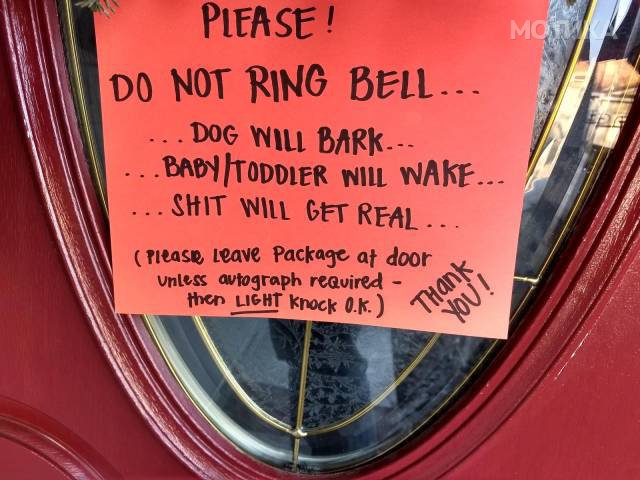 МОТИКА
PLEASE!
DO NOT RING BELL...
...DOG WILL BARK...
...BABY/TODDLER WILL WAKE...
...SHIT WILL GET REAL...
(Please Leave Package at door
unless autograph required -
then LIGHT knock O.K.)
THANK
YOU!